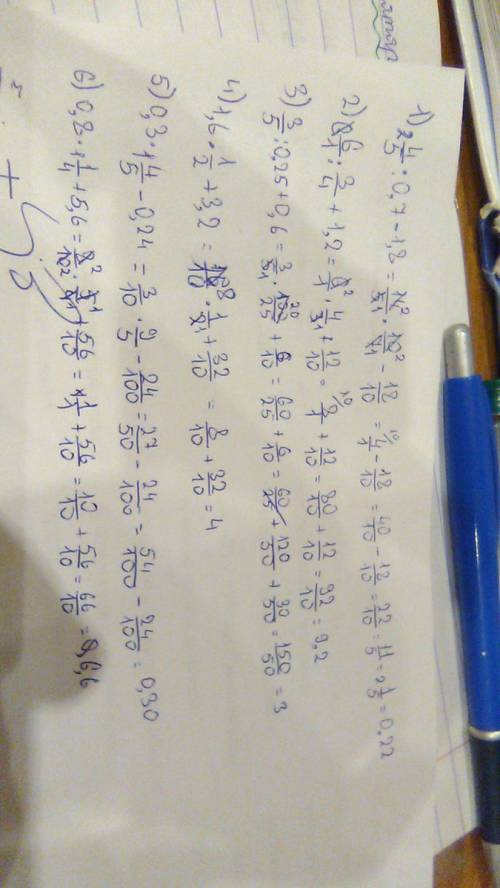 1) 2 4/5 : 0,7 - 1,8 = 14²/5₁ · 10²/7₁ - 18/10 = 4/1 - 18/10 = 40/10 - 18/10 = 22/10 = 11/5 = 2 1/5 = 0,22
2) 6/1 : 3/4 + 1,2 = 6²/1 · 4/3₁ + 12/10 = 8/1 + 12/10 = 80/10 + 12/10 = 92/10 = 9,2
3) 3/5 : 0,25 + 0,6 = 3/5₁ · 100²⁰/25 + 6/10 = 60/25 + 6/10 = 60/25 + 120/50 + 30/50 = 150/50 = 3
4) 1,6 · 1/2 + 3,2 = 16⁸/10 · 1/2₁ + 32/10 = 8/10 + 32/10 = 4
5) 0,3 · 1 4/5 - 0,24 = 3/10 · 9/5 - 24/100 = 27/50 - 24/100 = 54/100 - 24/100 = 0,30
6) 0,8 · 1 1/4 + 5,6 = 8²/10₂ · 5¹/4₁ + 56/10 = 1/1 + 56/10 = 10/10 + 56/10 = 66/10 = 6,6